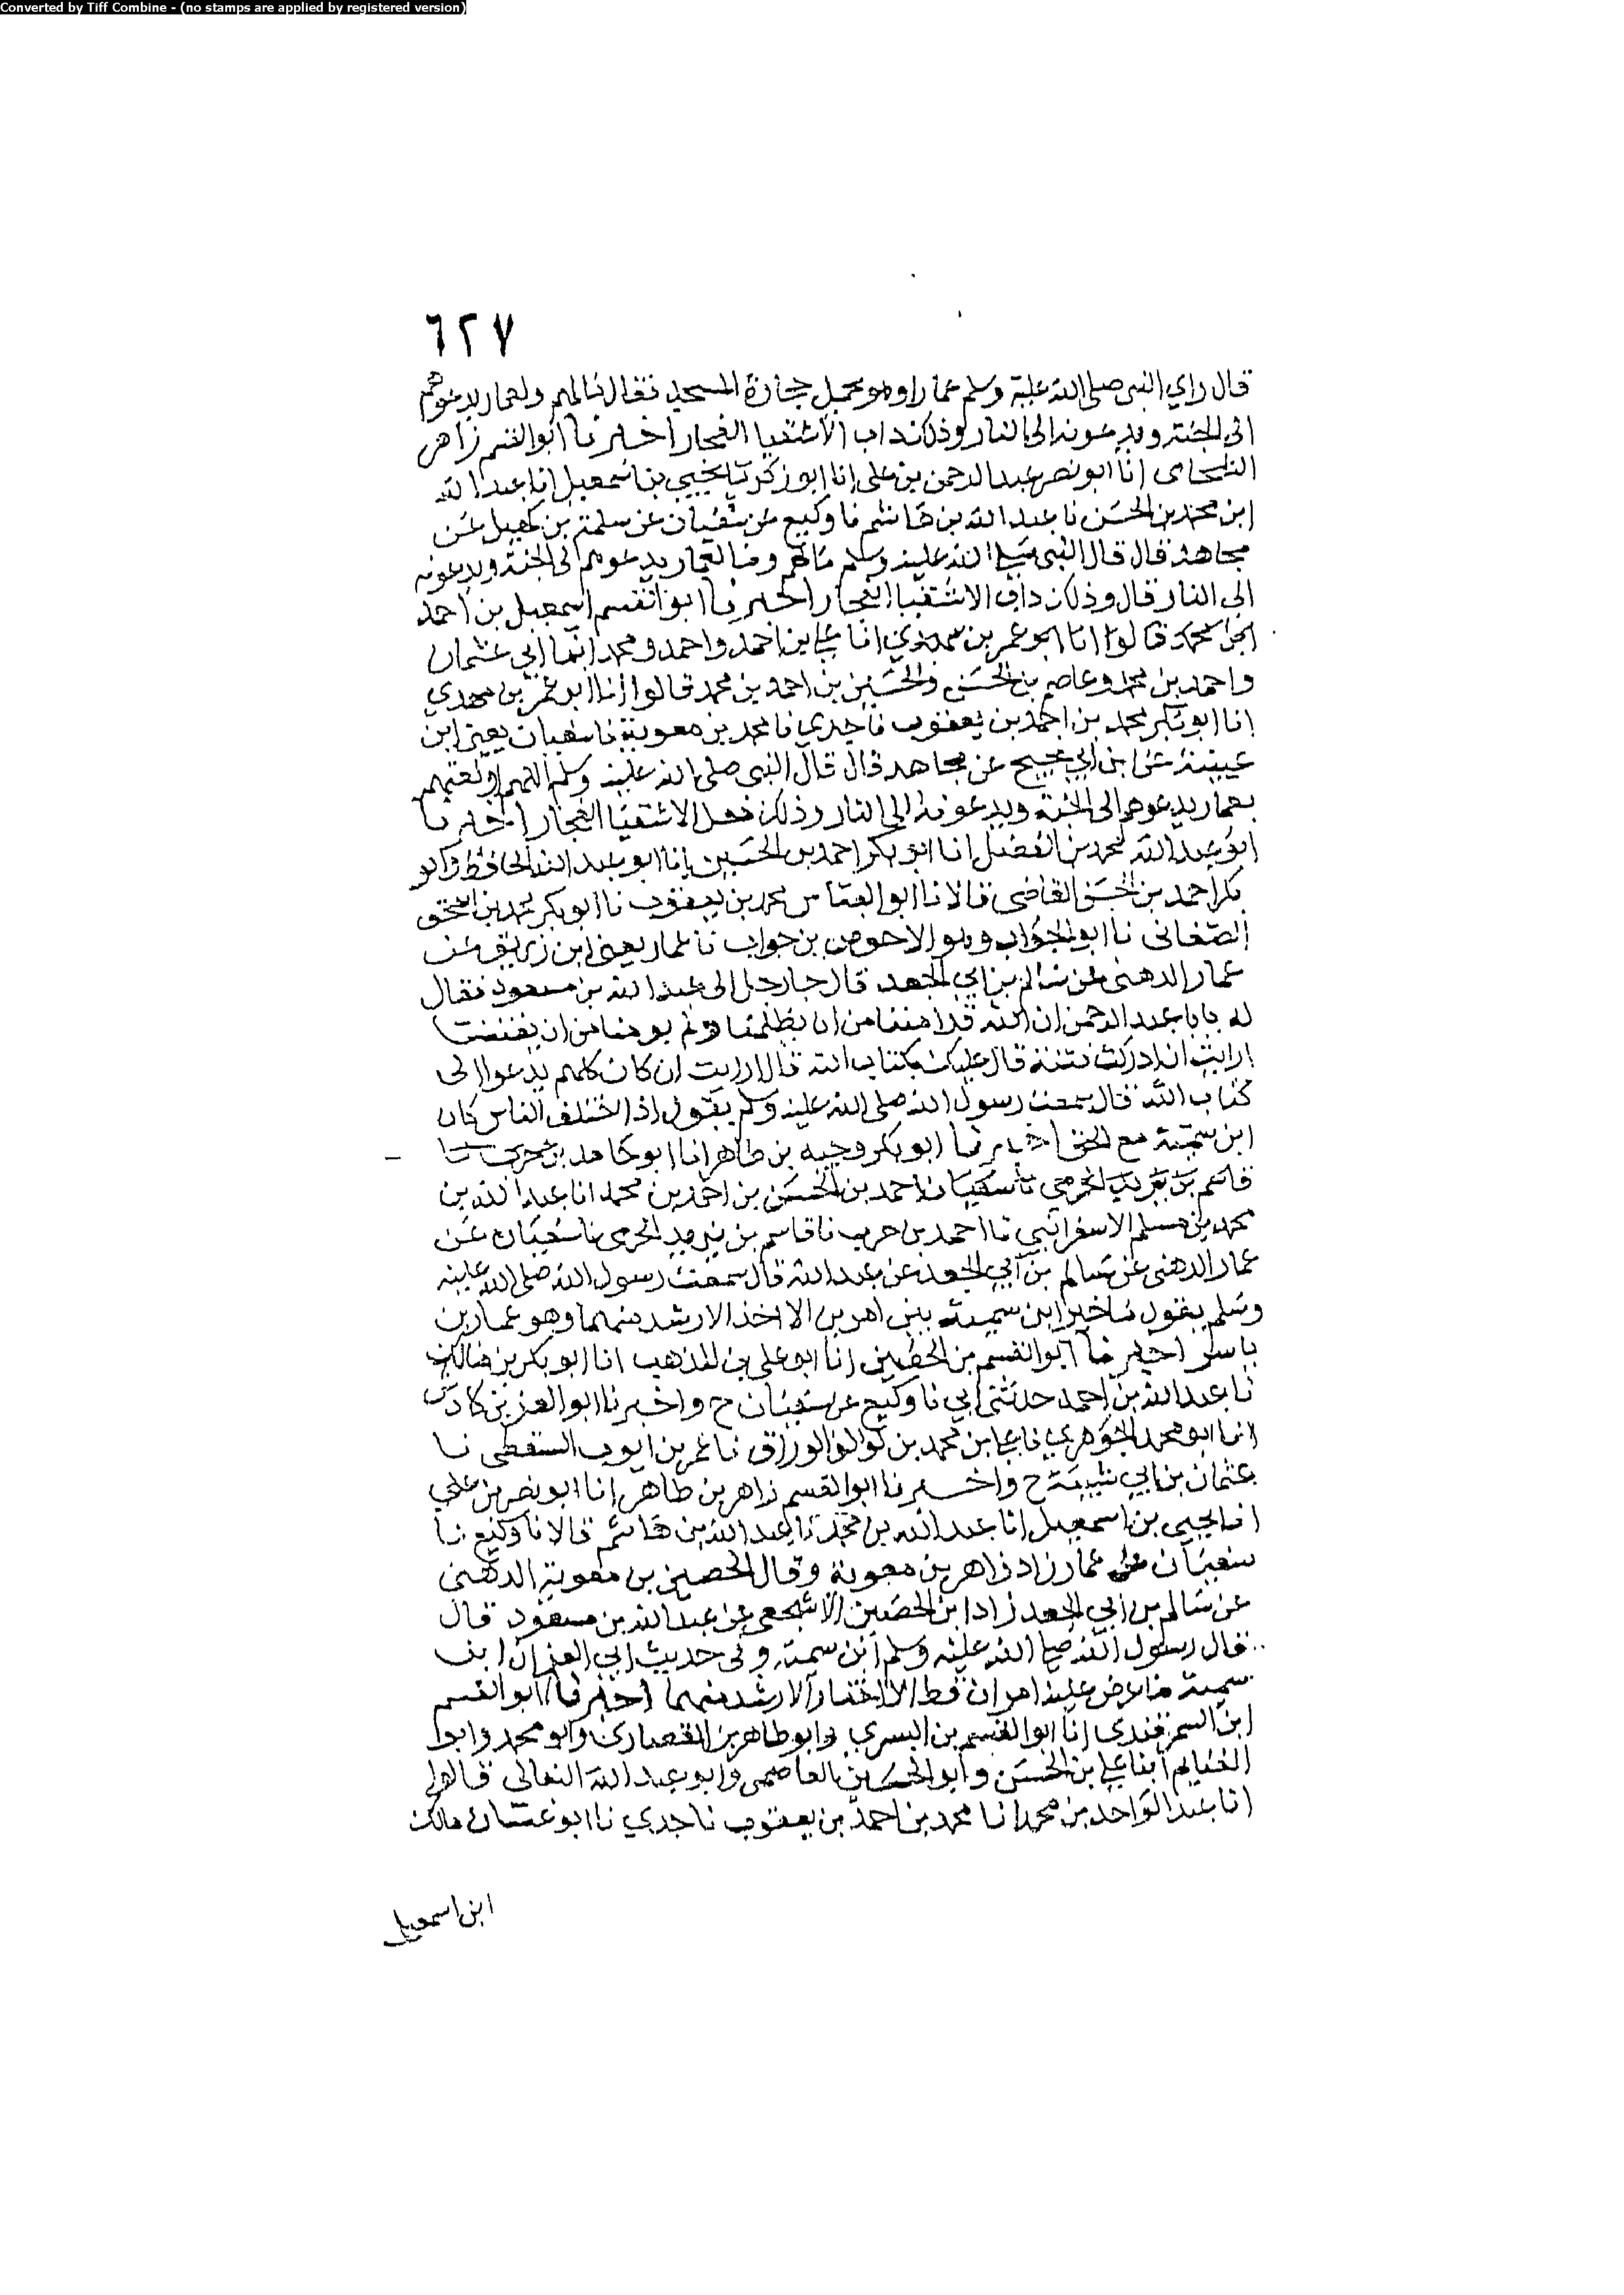 Converted by Tiff Combine - (no stamps are applied by registered version)
٦٢٧
قال راي النبي صلى الله عليه وسلم عمارا وهو يحمل حجارة المسجد فقال مالهم ولعمار يدعوهم
الى الجنة ويدعونه الى النار وذلك داب الاشقيا الفجار اخبرنا ابو القسم زاهر
الشحامي انا ابو نصر عبد الرحمن بن علي انا ابو زكريا يحيى بن اسمعيل انا عبد الله
ابن محمد بن الحسن نا عبد الله بن هاشم نا وكيع عن سفيان عن سلمة بن كهيل عن
مجاهد قال قال النبي صلى الله عليه وسلم مالهم وما لعمار يدعوهم الى الجنة ويدعونه
الى النار قال وذلك داب الاشقيا الفجار اخبرنا ابو القسم اسمعيل بن احمد
محمد قالوا انا ابو عمر بن مهدي انا علي بن احمد واحمد ومحمد ابنا ابي عثمان
واحمد بن محمد وعاصم بن الحسن والحسين بن احمد بن محمد قالوا انا ابو عمر بن مهدي
انا ابو بكر محمد بن احمد بن يعقوب نا جدي نا محمد بن معوية نا سفيان يعني ابن
عيينة عن ابن ابي نجيح عن مجاهد قال قال النبي صلى الله عليه وسلم اللهم اولعتهم
بعمار يدعوهم الى الجنة ويدعونه الى النار وذلك فعل الاشقيا الفجار اخبرنا
ابو عبد الله محمد بن الفضل انا ابو بكر احمد بن الحسين انا ابو عبد الله الحافظ وابو
بكر احمد بن الحسن القاضي قالا نا ابو العباس محمد بن يعقوب نا ابو بكر محمد بن اسحق
الصغاني نا ابو الجواب وهو الاحوص بن جواب نا عمار يعني ابن زريق عن
عمار الدهني عن سالم بن ابي الجعد قال جا رجل الى عبد الله بن مسعود فقال
له يابا عبد الرحمن ان الله قد امننا من ان يظلمنا ولم يومنا من ان يفتننا
ارايت ان ادركت فتنة قال عليك بكتاب الله قال ارايت ان كان كلهم يدعوا الى
كتاب الله قال سمعت رسول الله صلى الله عليه وسلم يقول اذا اختلف الناس كان
ابن سمية مع الحق اخبرنا ابو بكر وجيه بن طاهر انا ابو حامد بن حرب نا
قاسم بن يزيد الجرمي نا سفيان احمد بن الحسن بن احمد بن محمد انا عبد الله بن
محمد بن مسلم الاسفرائيني نا احمد بن حرب نا قاسم بن يزيد الجرمي نا سفيان عن
عمار الدهني عن سالم بن ابي الجعد عن عبد الله قال سمعت رسول الله صلى الله عليه
وسلم يقول ما خير ابن سمية بين امرين الا اخذ الارشد منهما وهو عمار بن
ياسر اخبرنا ابو القسم بن الحصين انا ابو علي بن المذهب انا ابو بكر بن مالك
نا عبد الله بن احمد حدثني ابي نا وكيع عن سفيان ح واخبرنا ابو العز بن كادش
انا ابو محمد الجوهري نا علي بن محمد بن لولو الوراق نا عمر بن ايوب السقطي نا
عثمان بن ابي شيبة ح واخبرنا ابو القسم زاهر بن طاهر انا ابو نصر بن علي
انا يحيى بن اسمعيل انا عبد الله بن محمد نا عبد الله بن هاشم قالا نا وكيع نا
سفيان عن عمار زاد زاهر بن معوية وقال الحصين بن معوية الدهني
عن سالم بن ابي الجعد زاد ابن الحصين الاشجعي عن عبد الله بن مسعود قال
قال رسول الله صلى الله عليه وسلم ابن سمية وفي حديث ابي العز ان ابن
سمية ما عرض عليه امران قط الا اختار الارشد منهما اخبرنا ابو القسم
ابن السمرقندي انا ابو القسم بن البسري وابو طاهر بن القصاري وابو محمد وابو
الغنايم ابنا علي بن الحسن وابو الحسين العاصمي وابو عبد الله النعالي قالوا
انا عبد الواحد بن محمد انا محمد بن احمد بن يعقوب نا جدي نا ابو غسان مالك
ابن اسمعيل